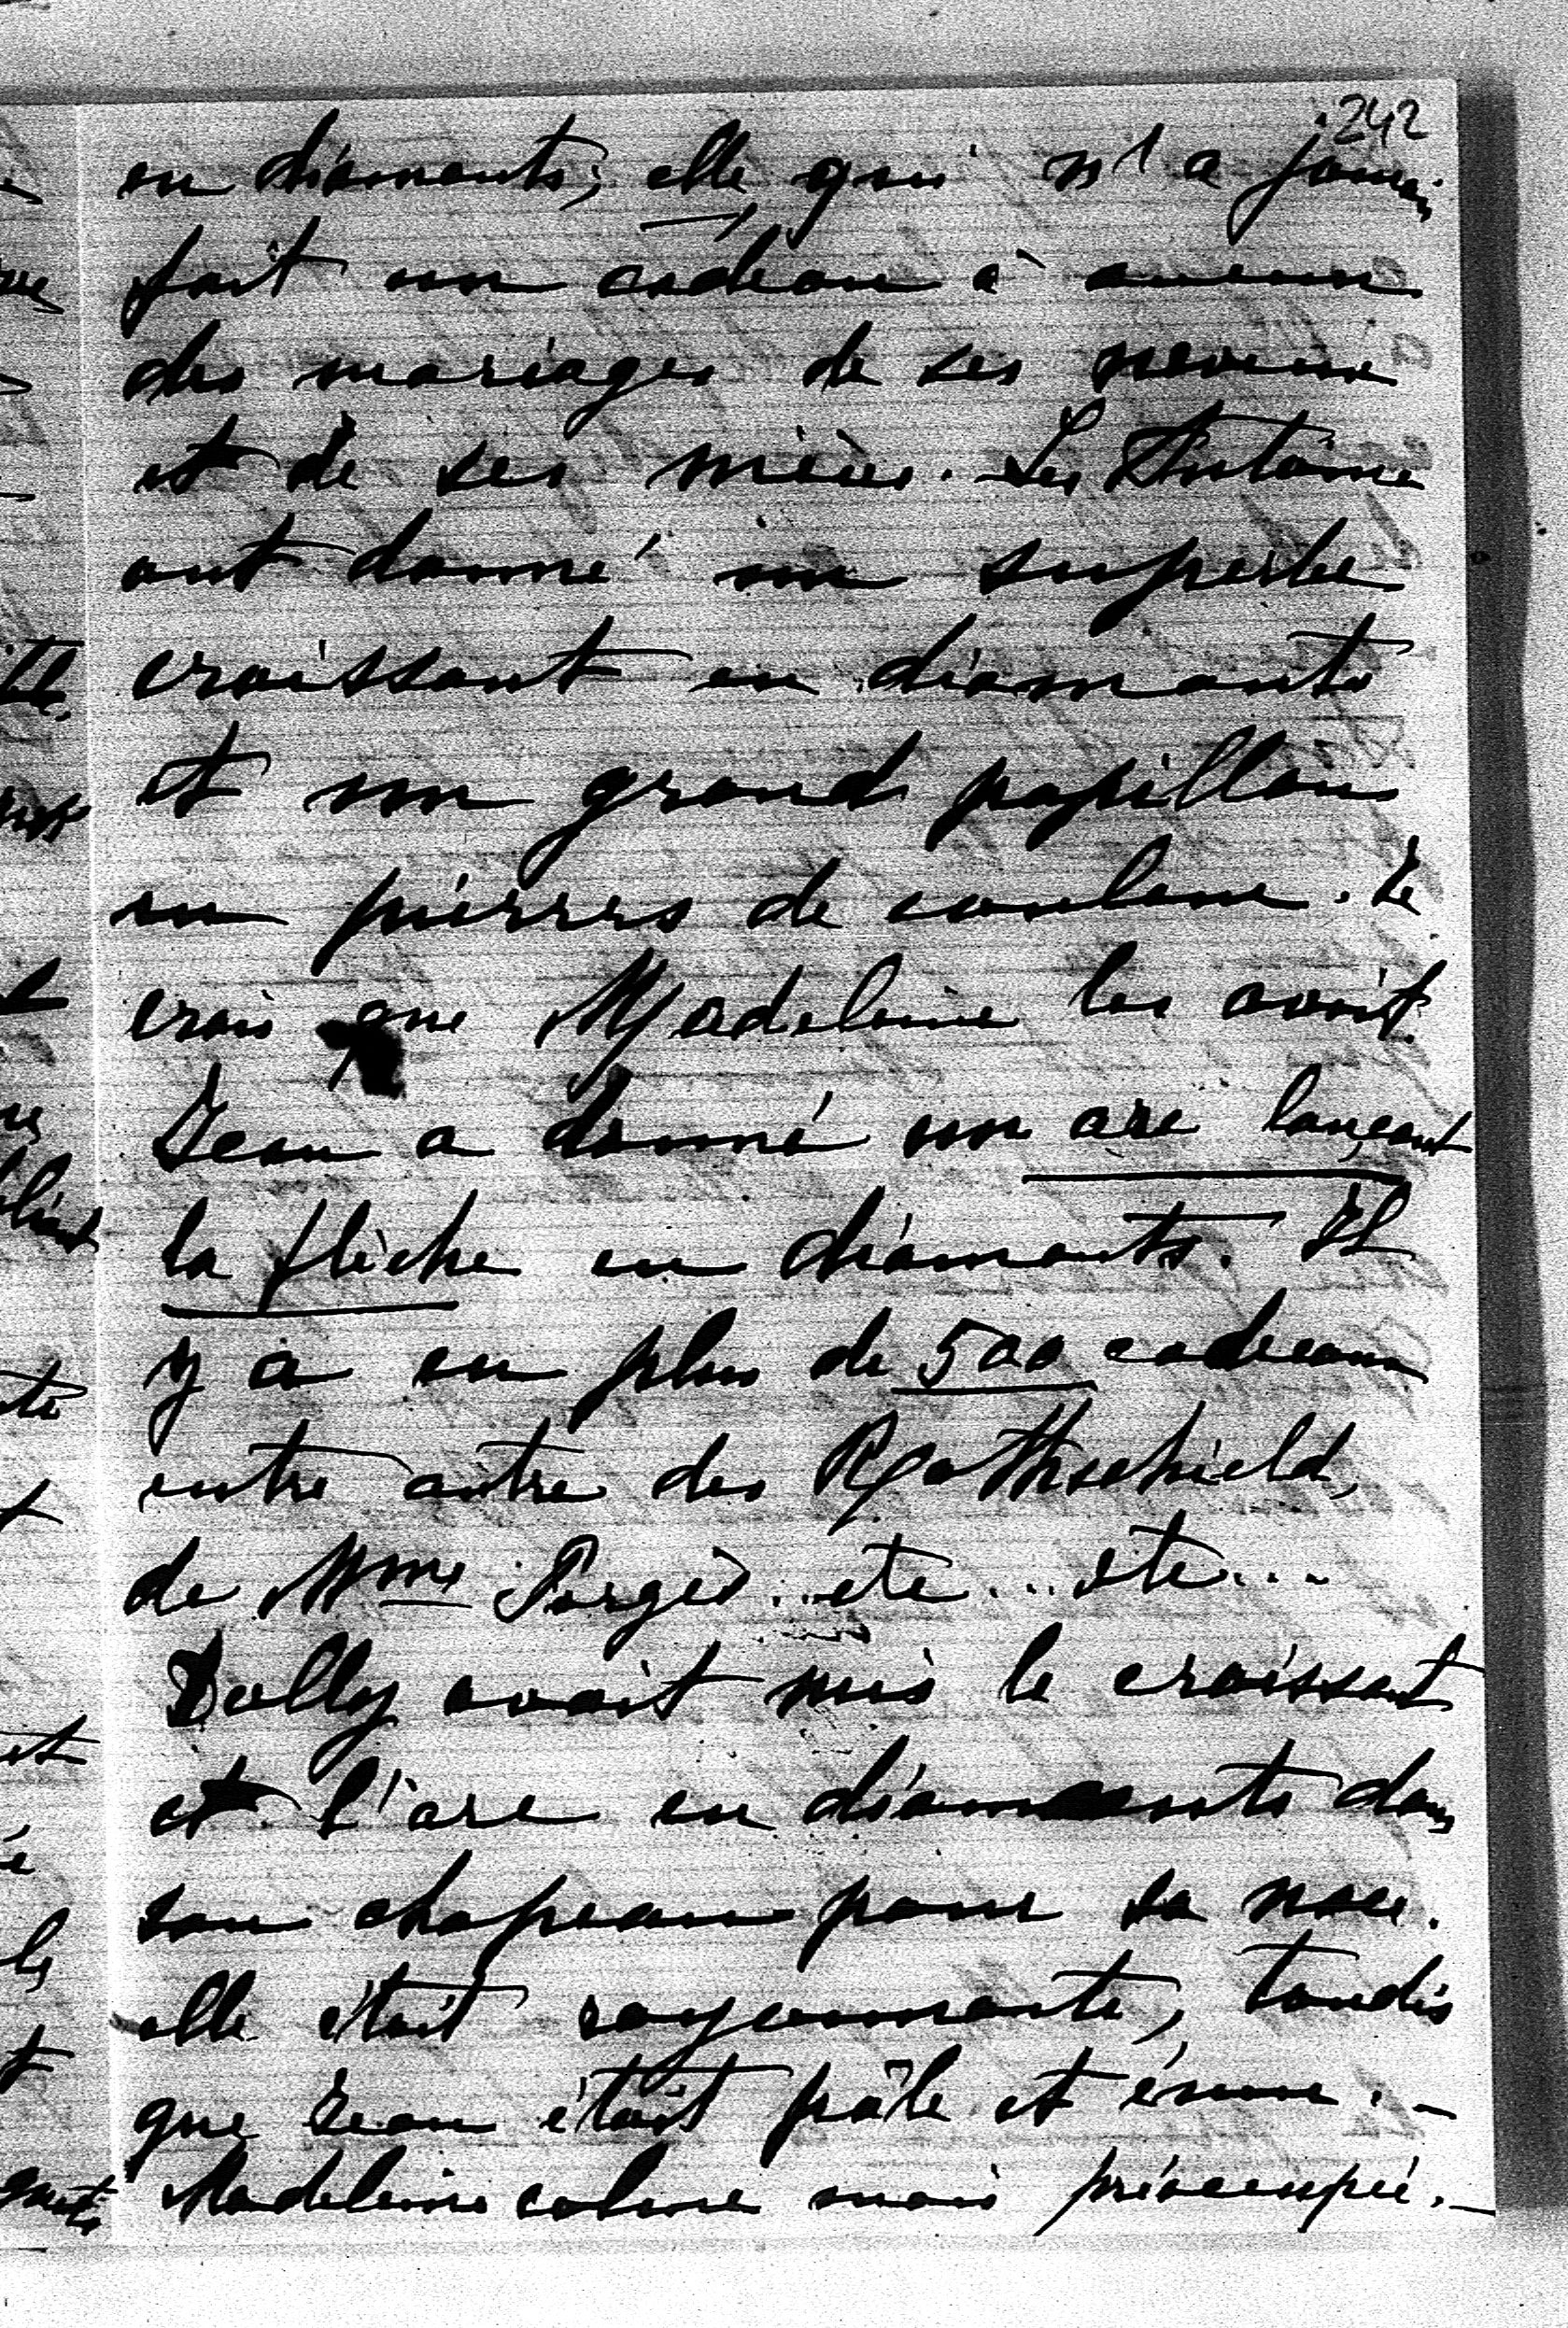 242
en diamants, elle qui n'a jamais
fait un cadeau à aucun
des mariages de ses neveux
et de ses nièces. Les Antoine
ont donné un superbe
croissant en diamants
et un grand papillon
en pierres de couleur. Je
crois que Madeleine les avait.
Jean a donné un arc lançant
la flèche en diamants. Il
y a eu plus de 500 cadeaux
entre autre des Rothschild,
de Mme Porgès...etc...etc...
Dolly avait mis le croissant
et l'arc en diamants dans
son chapeau pour sa noce.
elle était rayonnante, tandis
que Jean était pâle et émue. -
Madeleine calme mais préoccupée. -